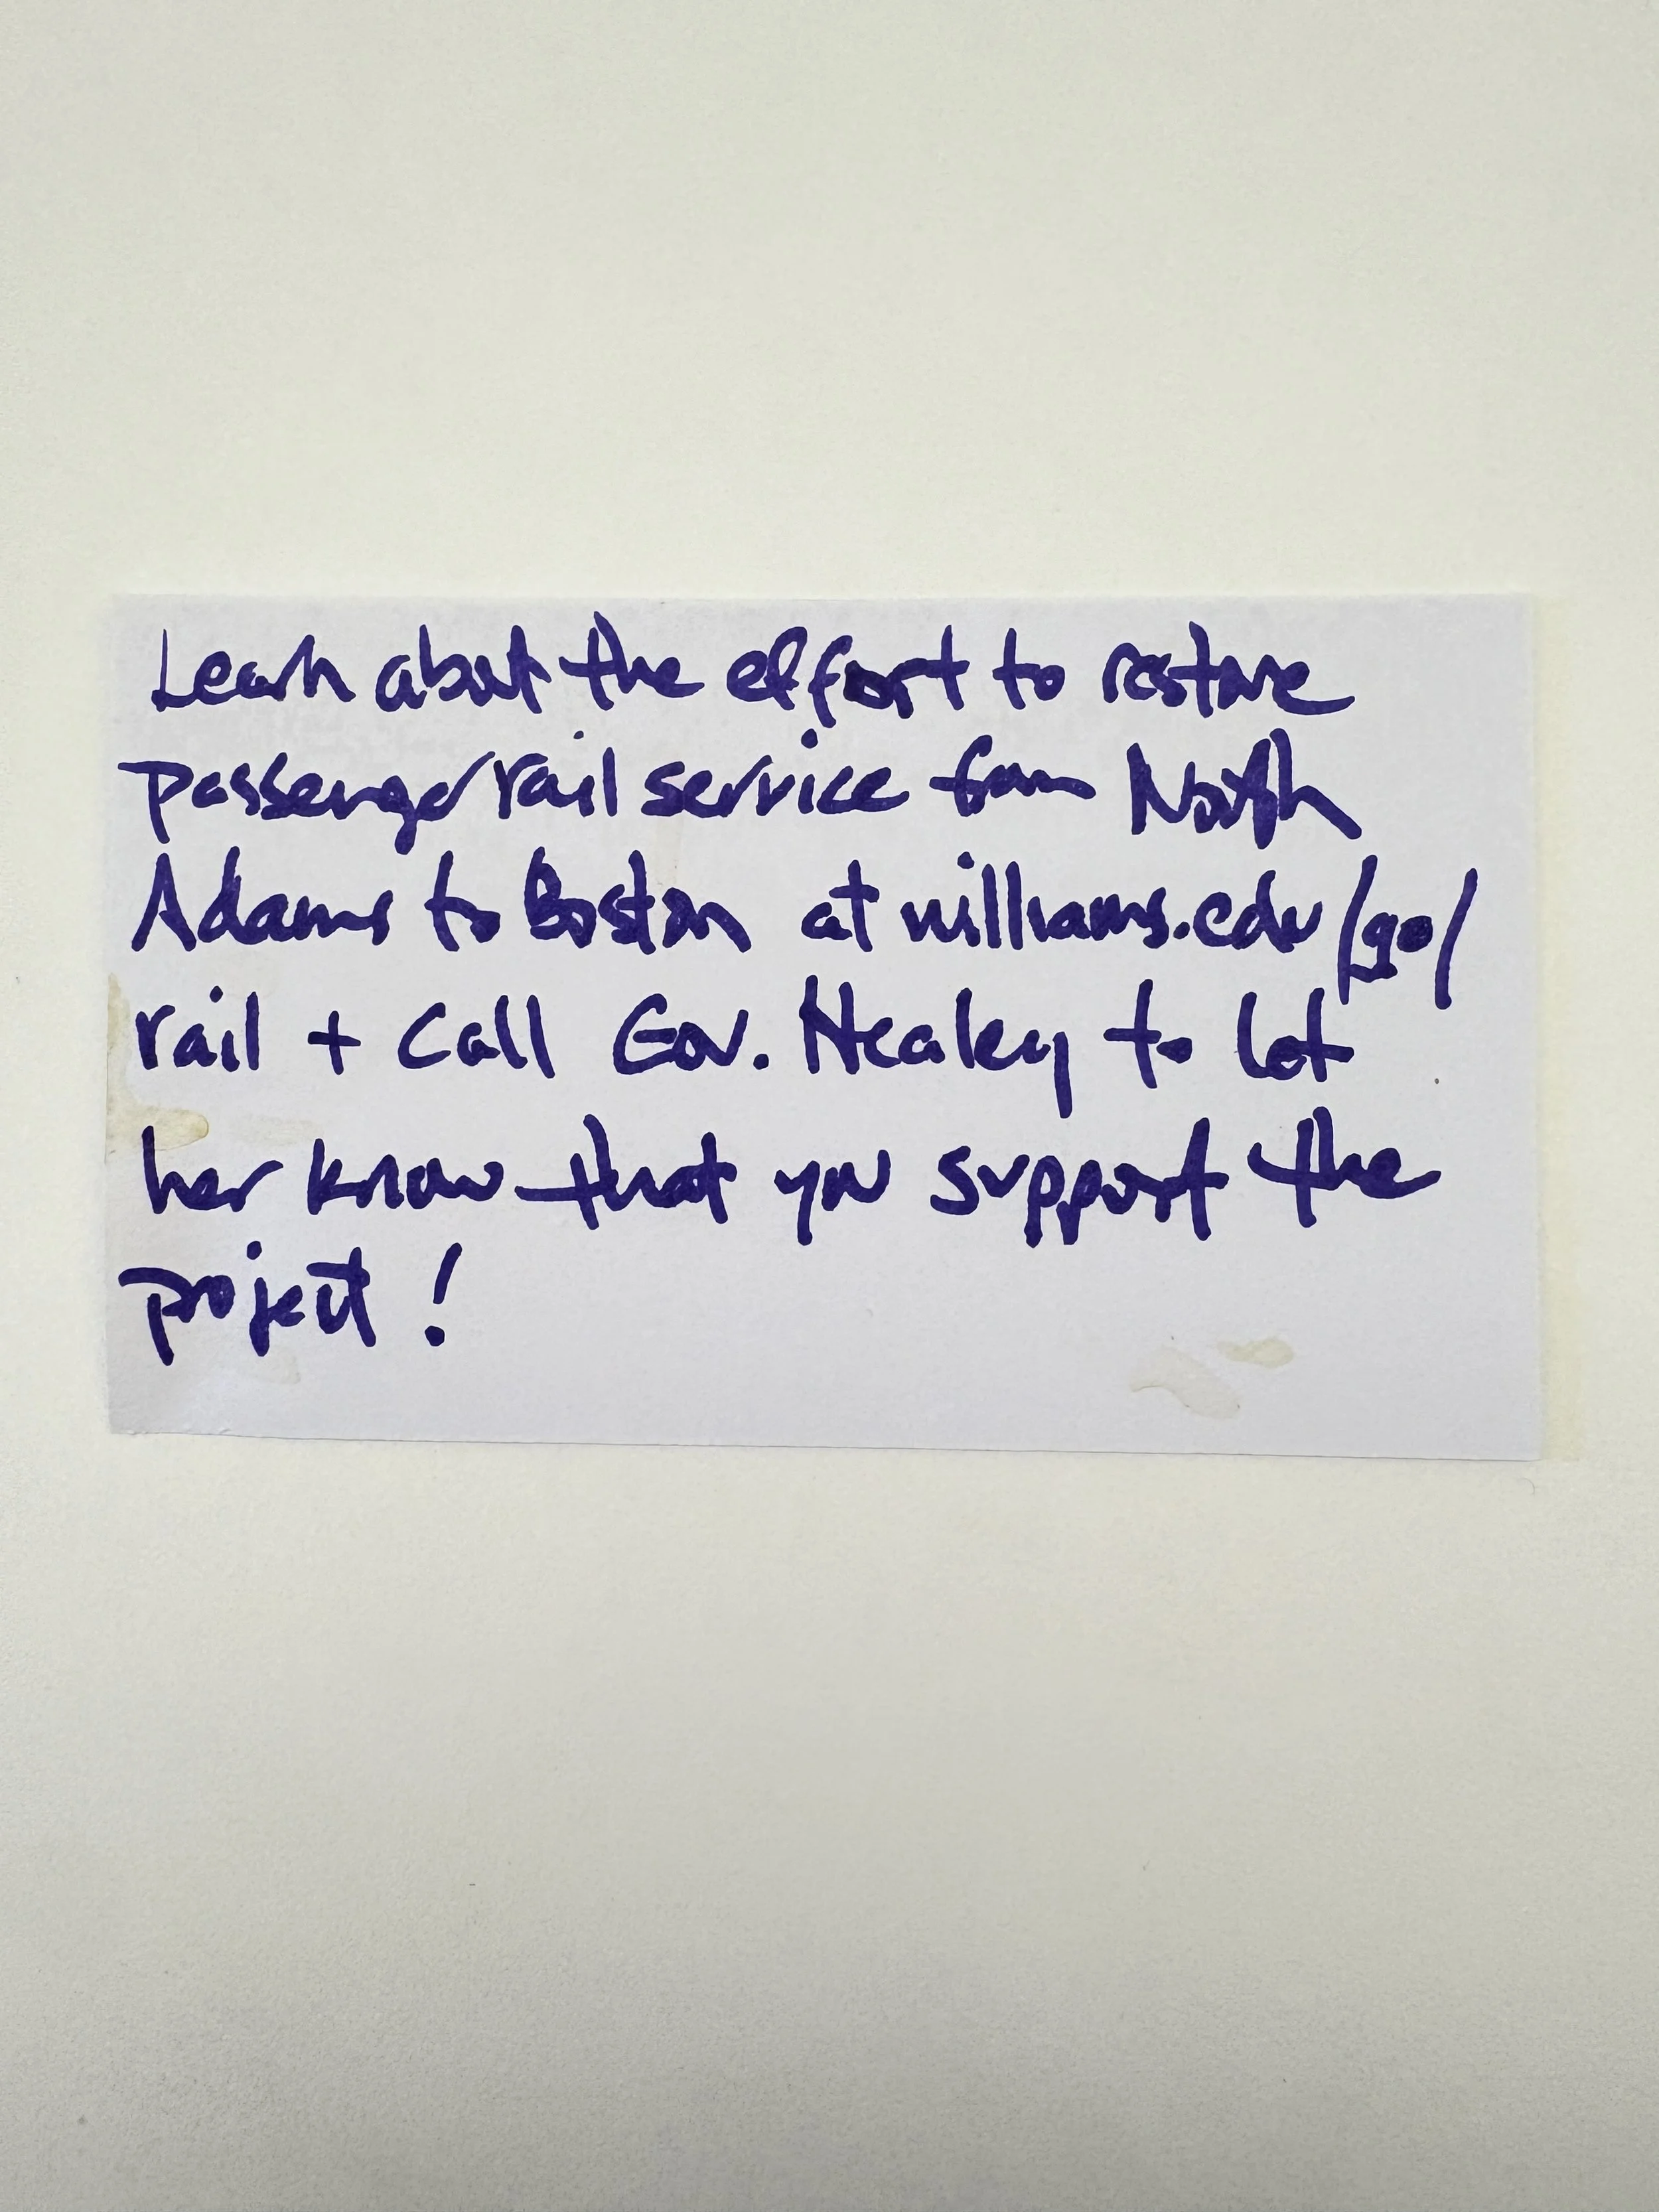 Learn about the effort to restore
passenger rail service from North
Adams to Boston at williams.edu/go/
rail + call Gov. Healey to let
her know that you support the
project!